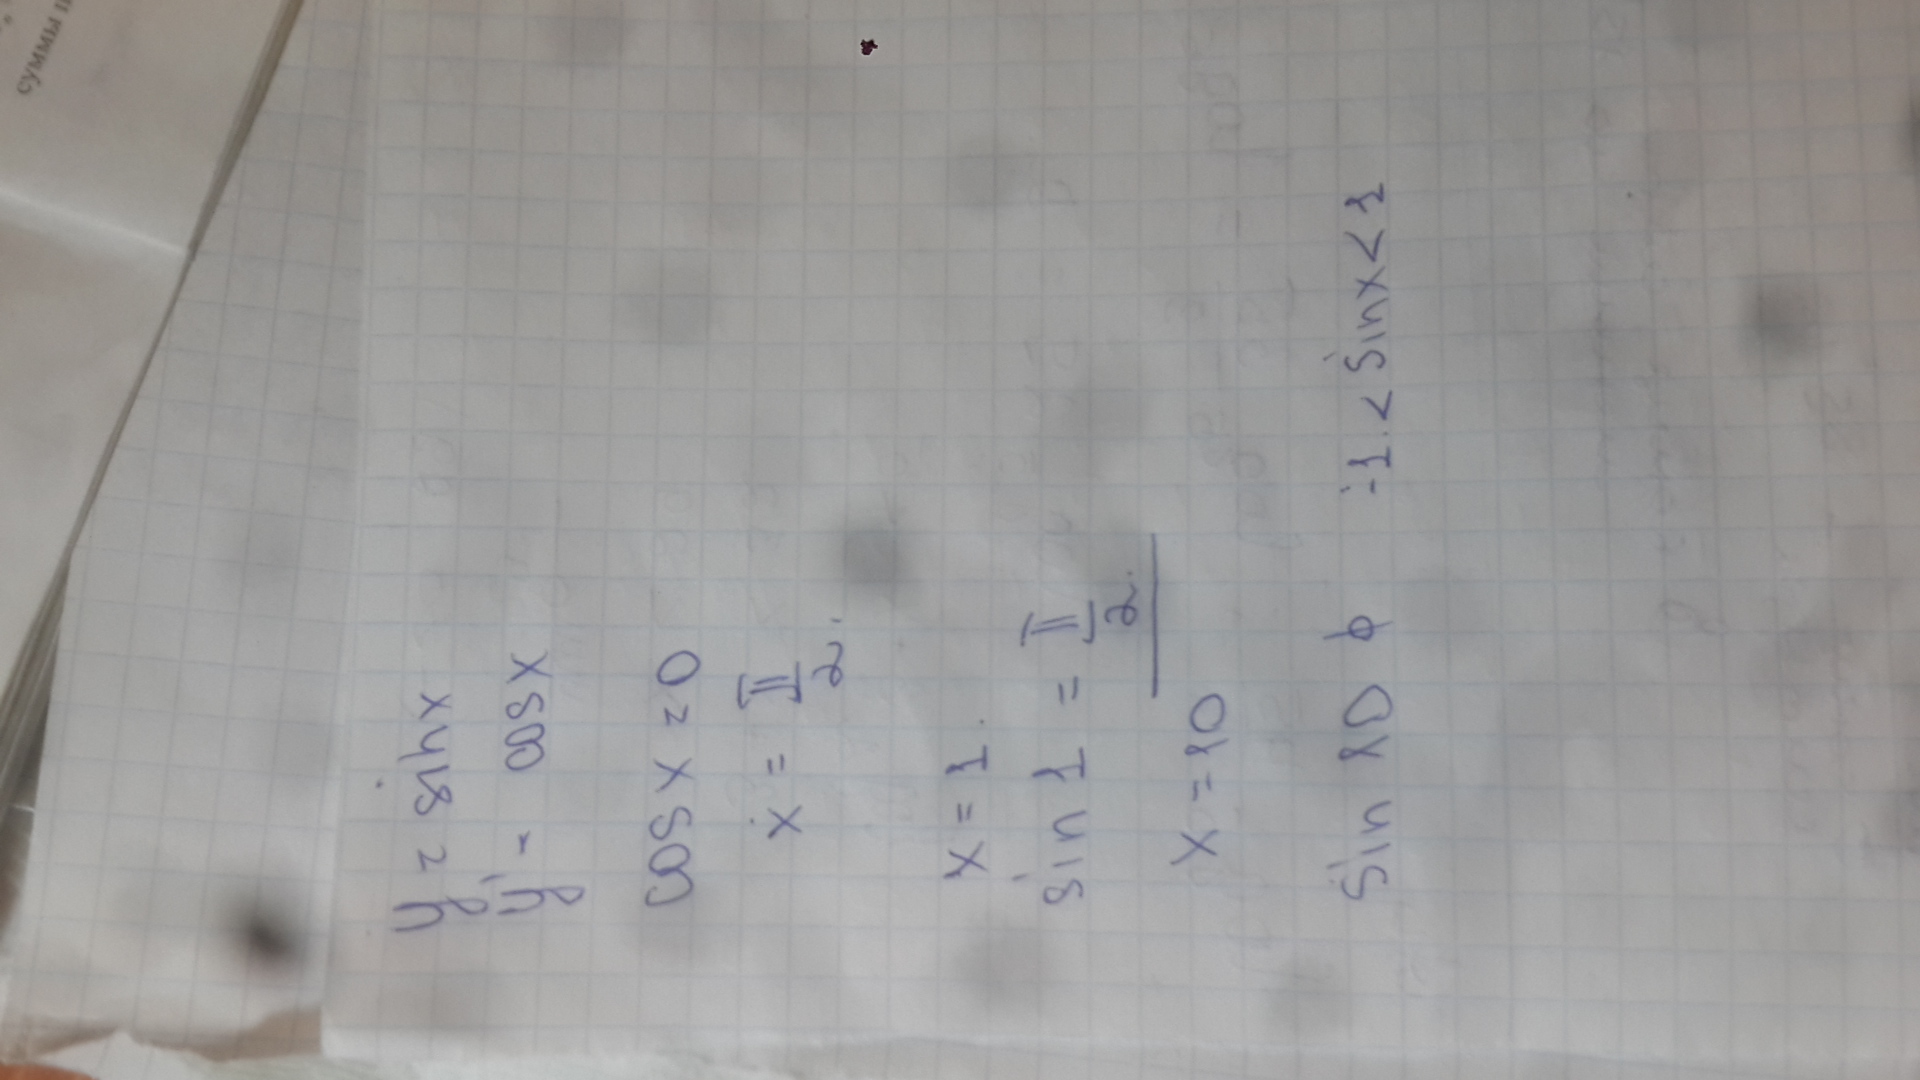 суммы п
y = sinx
y' - cosx
cos x = 0
x = π/2.
x = 1.
sin 1 = π/2.
x = 10
sin 10 -1 < sinx < 1